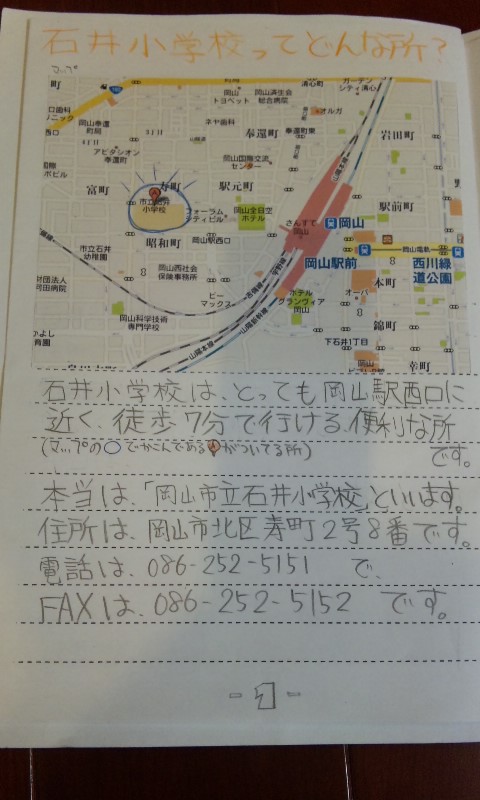 石井小学校ってどんな所?
マップ
町
岡山
トヨペット
岡山済生会
総合病院
ガーデン
シティ清心
清心町
口歯科
リニック
岡山奉還
町局
ネヤ歯科
オルガ
3丁目
4丁目
奉還町
奉還町東
岩田町
アビタシオン
奉還町
岡山国際交流
センター
富町
寿町
駅元町
駅前町
市立石井
小学校
フォーラム
シティビル
岡山全日空
ホテル
さんすて
岡山
岡山
昭和町
岡山駅西口
岡山駅前
岡山電軌
西川緑
道公園
市立石井
幼稚園
岡山西社会
保険事務所
財団法人
河田病院
ビー
マックス
ホテル
グランヴィア
岡山
オーパ
本町
岡山科学技術
専門学校
錦町
下石井1丁目
幸町
山陽本線
山陽新幹線
石井小学校は、とっても岡山駅西口に
近く、徒歩7分で行ける、便利な所
(マップの○でかこんであるAがついてる所)
です。
本当は、「岡山市立石井小学校」といいます。
住所は、岡山市北区寿町2号8番です。
電話は、086-252-5151 で、
FAXは、086-252-5152 です。
-1-